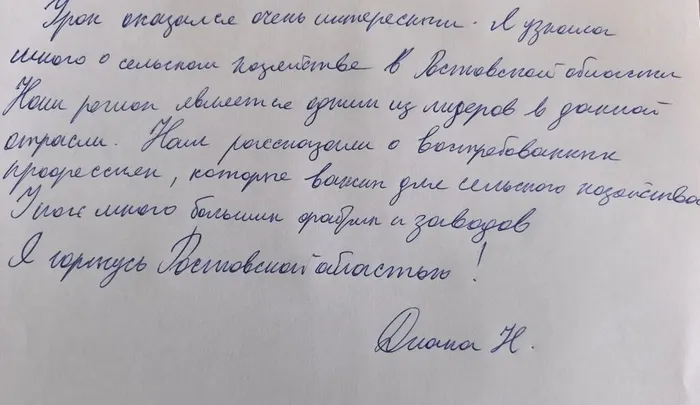 Урок оказался очень интересным. Я узнала
много о сельском хозяйстве в Ростовской области
Наш регион является одним из лидеров в данной
отрасли. Нам рассказали о востребованных
профессиях, которые важны для сельского хозяйства
У нас много больших фабрик и заводов
Я горжусь Ростовской областью!
Диана Н.